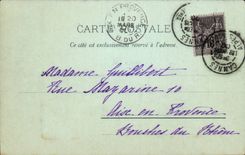 CARTE POSTALE
Ce côté est exclusivement réservé à l'adresse
Madame Guillibert
Rue Mazarine 10
Aix en Provence
Bouches du Rhône